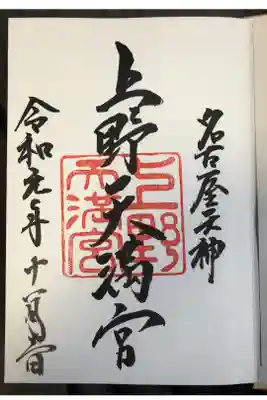 名古屋天神
上野天満宮
上野天満宮
令和元年十